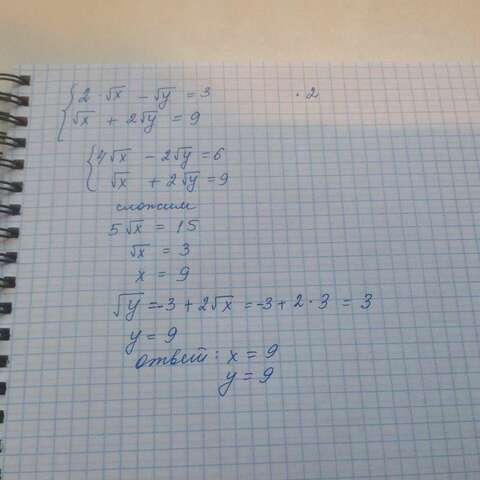 2·√x - √y = 3 ·2
√x + 2√y = 9
4√x - 2√y = 6
√x + 2√y = 9
сложим
5√x = 15
√x = 3
x = 9
√y = -3 + 2√x = -3 + 2·3 = 3
y = 9
ответ: x = 9
y = 9